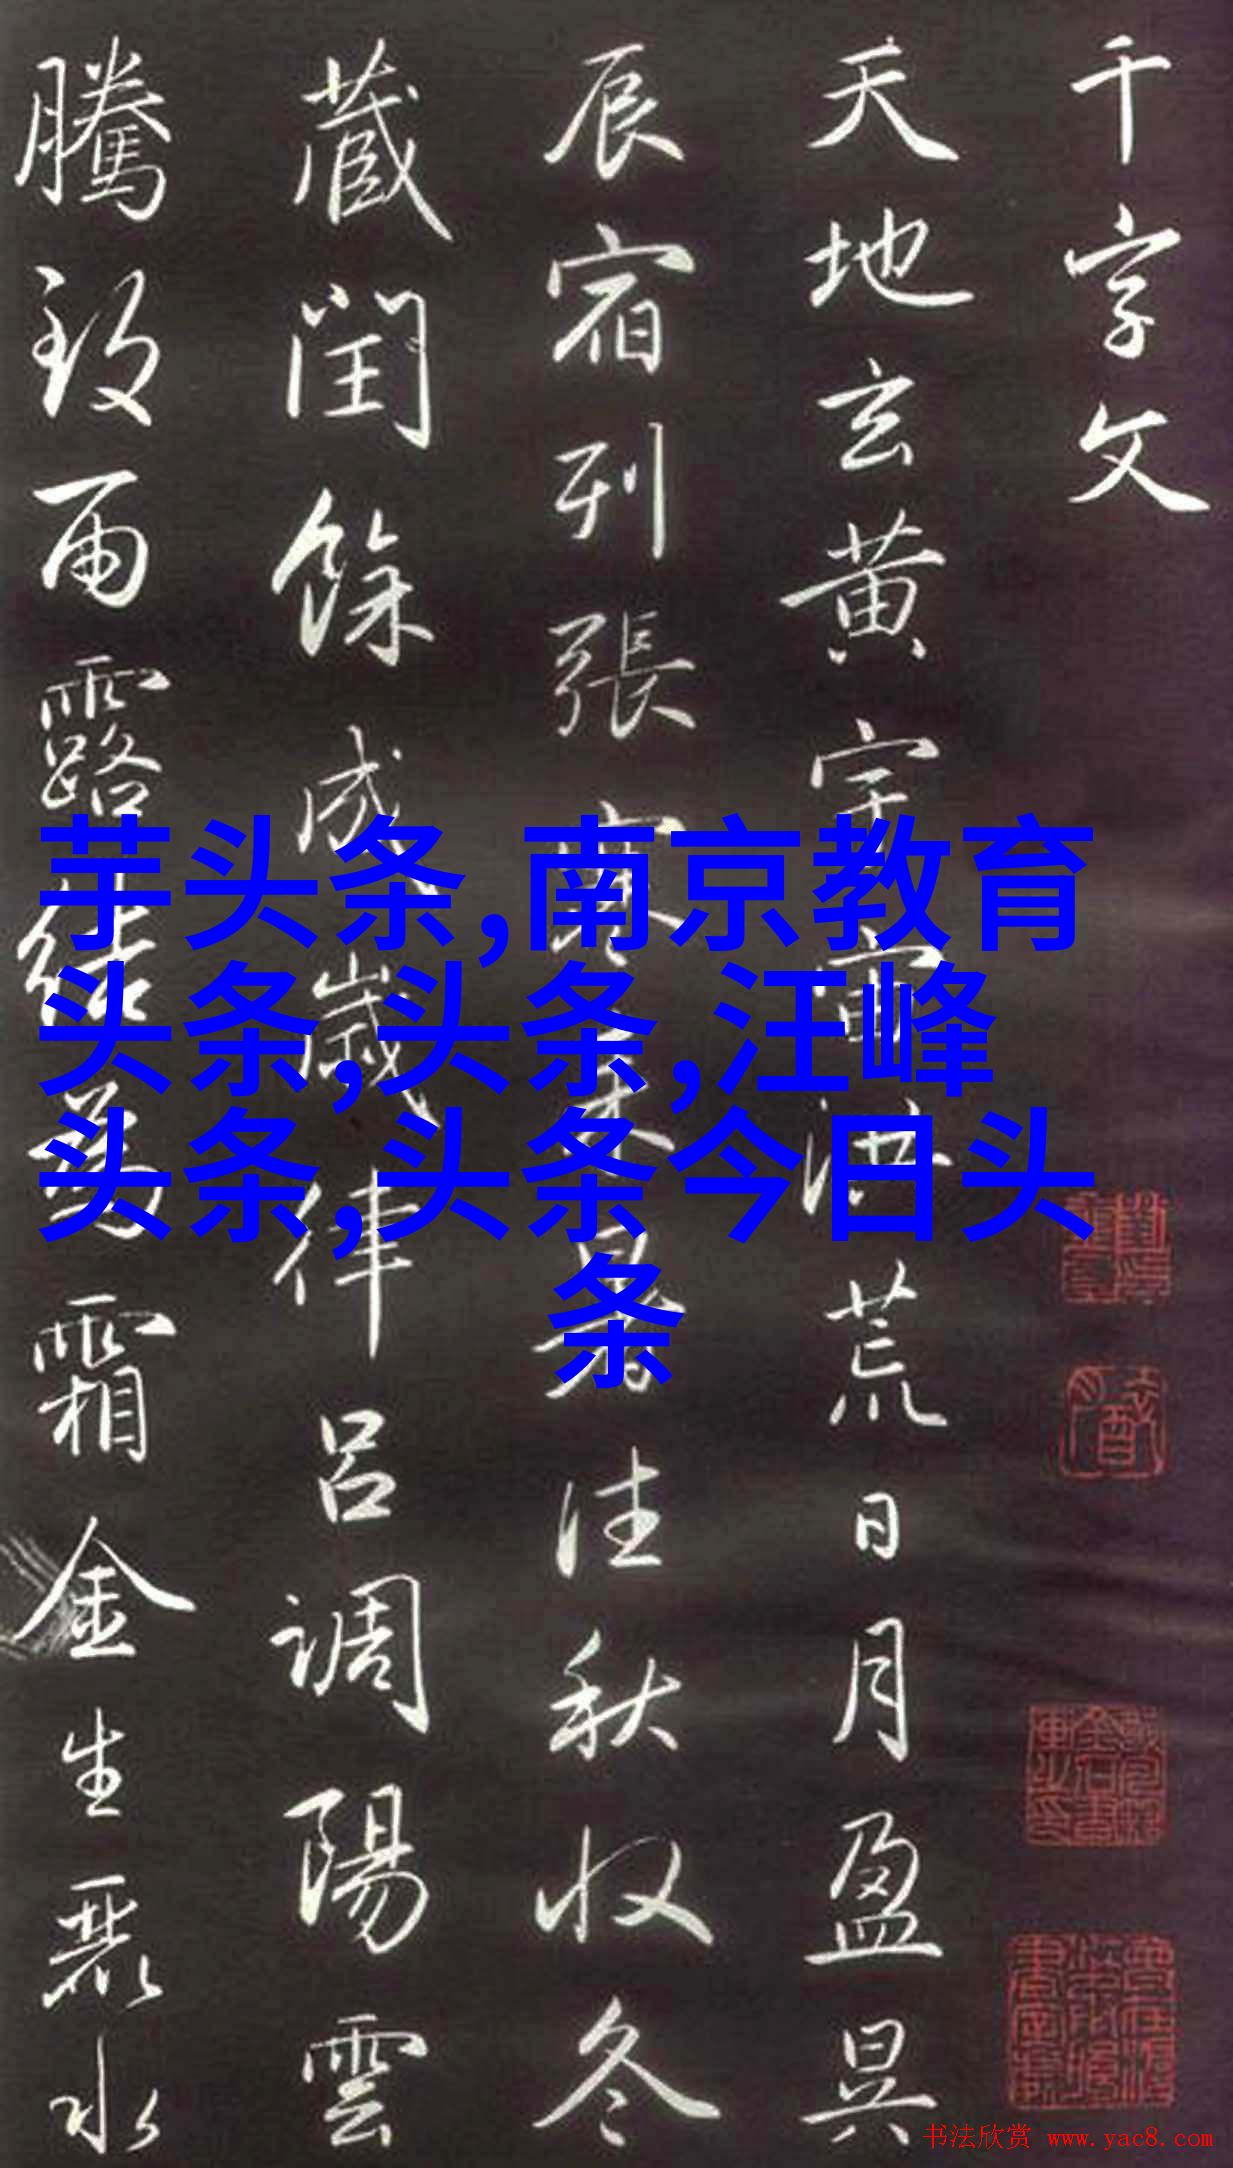 千字文
天地玄黄宇宙洪荒日月盈昃
辰宿列張寒来暑往秋收冬
藏閏餘成歲律呂調陽雲
騰致雨露結為霜金生麗水
芋头条,南京教育
头条,头条,汪峰
头条,头条今日头
条
书法欣赏 www.yac8.com